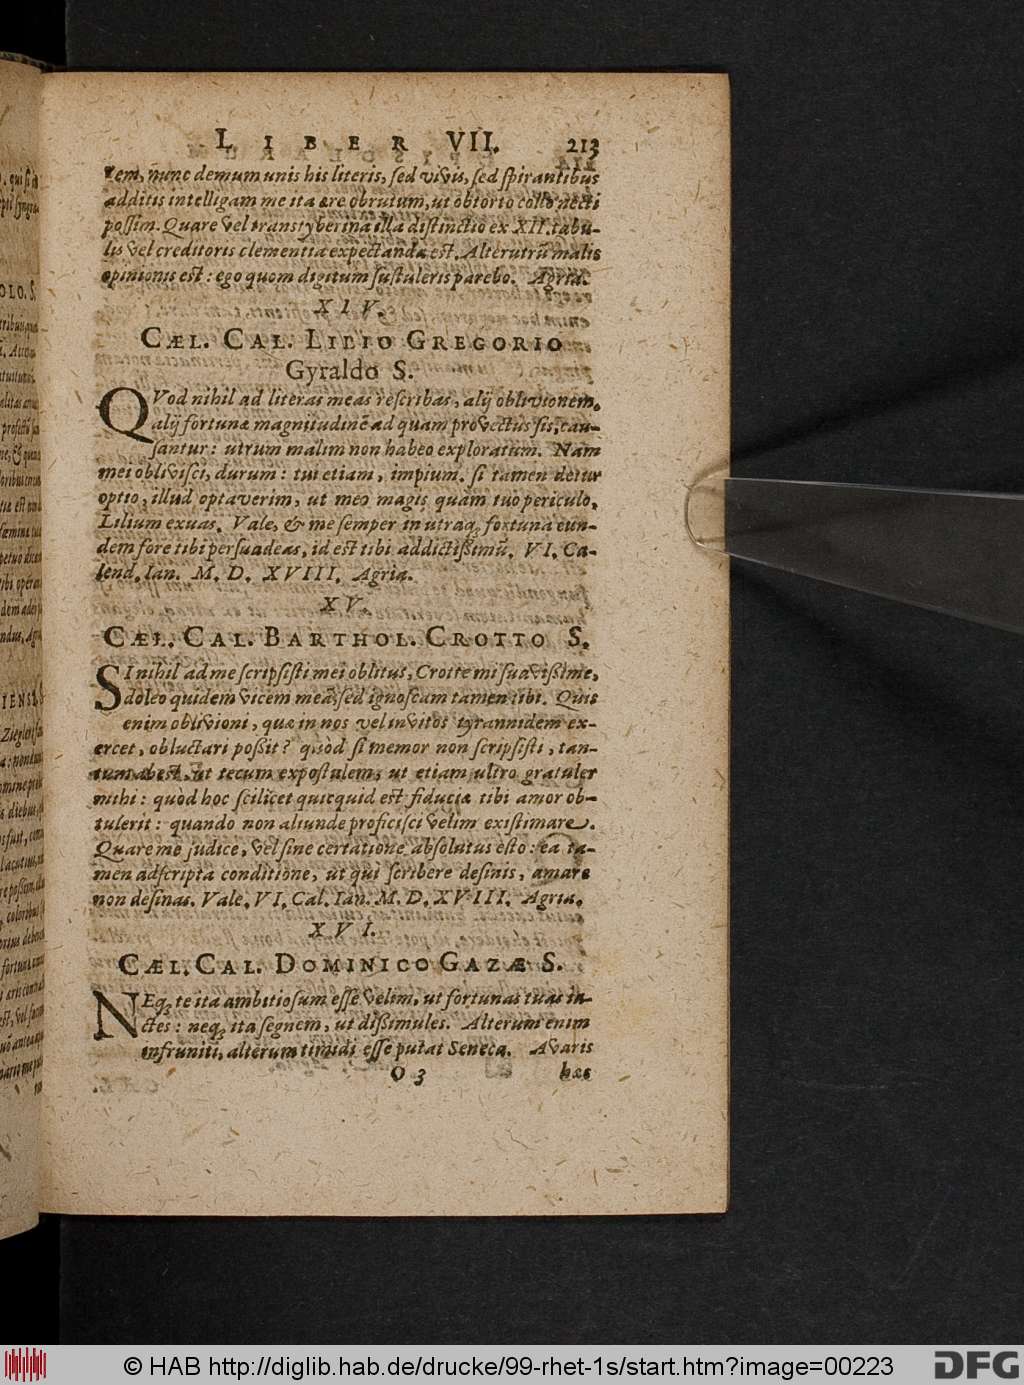 LIBER VII. 213
rem, nunc demum unis his literis, sed vivis, sed spirantibus
additis intelligam me ita ære obrutum, ut obtorto collo necti
possim. Quare vel transtyberina illa distinctio ex XII. tabu-
lis vel creditoris clementia expectanda est. Alterutrũ malis
opinionis est: ego quom digitum sustuleris parebo. Agria.
XIV.
CÆL. CAL. LILIO GREGORIO
Gyraldo S.
QVod nihil ad literas meas rescribas, alij oblivionem,
alij fortunæ magnitudinẽ ad quam provectus sis, cau-
santur: utrum malim non habeo exploratum. Nam
mei oblivisci, durum: tui etiam, impium. si tamen detur
optio, illud optaverim, ut meo magis quàm tuo periculo,
Lilium exuas. Vale, & me semper in utraq; fortuna eun-
dem fore tibi persuadeas, id est tibi addictissimũ. VI. Ca-
lend. Ian. M. D. XVIII. Agria.
XV.
CÆL. CAL. BARTHOL. CROTTO S.
SI nihil ad me scripsisti mei oblitus, Crotte mi suavissime,
doleo quidem vicem meã, sed ignoscam tamen tibi. Quis
enim oblivioni, quæ in nos vel invitos tyrannidem ex-
ercet, obluctari possit? quòd si memor non scripsisti, tan-
tum abest, ut tecum expostulem, ut etiam ultro gratuler
mihi: quòd hoc scilicet quicquid est fiduciæ tibi amor ob-
tulerit: quando non aliunde proficisci velim existimare.
Quare me judice, vel sine certatione absolutus esto: ea ta-
men adscripta conditione, ut qui scribere desinis, amare
non desinas. Vale. VI. Cal. Ian. M. D. XVIII. Agria.
XVI.
CÆL. CAL. DOMINICO GAZÆ S.
NEq; te ita ambitiosum esse velim, ut fortunas tuas in-
ctes: neq; ita segnem, ut dissimules. Alterum enim
infruniti, alterum timidi esse putat Seneca. Avaris
O 3 hæc
© HAB http://diglib.hab.de/drucke/99-rhet-1s/start.htm?image=00223
DFG